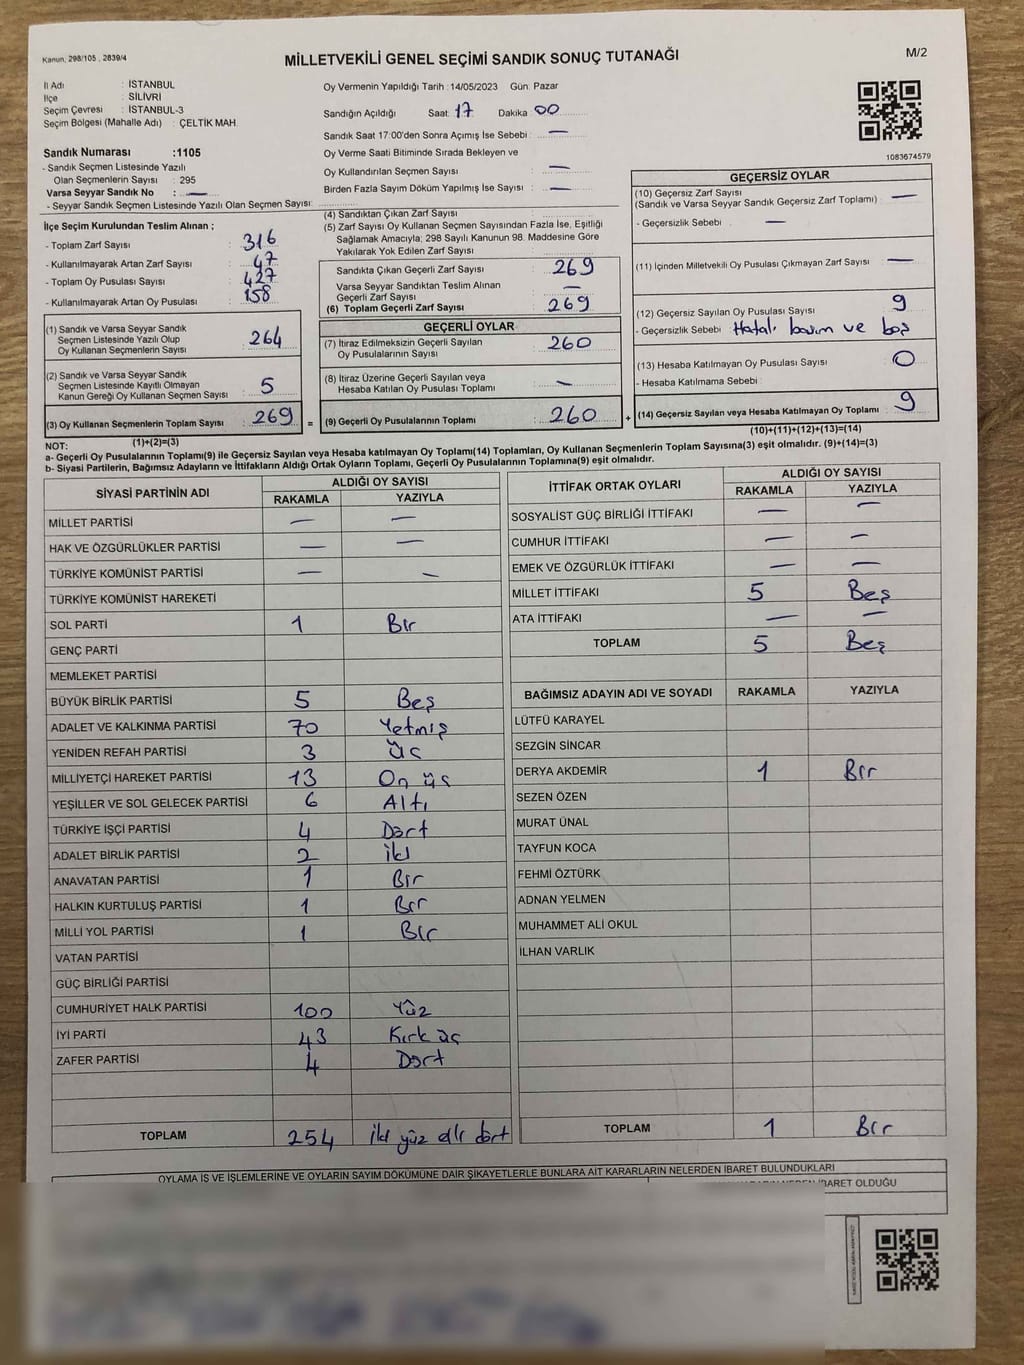 Kanun, 298/105 , 2839/4
MİLLETVEKİLİ GENEL SEÇİMİ SANDIK SONUÇ TUTANAĞI
M/2
İl Adı : İSTANBUL
İlçe : SİLİVRİ
Seçim Çevresi : İSTANBUL-3
Seçim Bölgesi (Mahalle Adı) : ÇELTİK MAH.
Sandık Numarası :1105
- Sandık Seçmen Listesinde Yazılı
Olan Seçmenlerin Sayısı : 295
Varsa Seyyar Sandık No : —
- Seyyar Sandık Seçmen Listesinde Yazılı Olan Seçmen Sayısı:
Oy Vermenin Yapıldığı Tarih : 14/05/2023 Gün: Pazar
Sandığın Açıldığı Saat: 17 Dakika: 00
Sandık Saat 17:00'den Sonra Açımış İse Sebebi : —
Oy Verme Saati Bitiminde Sırada Bekleyen ve
Oy Kullandırılan Seçmen Sayısı : —
Birden Fazla Sayım Döküm Yapılmış İse Sayısı : —
1083674579
İlçe Seçim Kurulundan Teslim Alınan ;
- Toplam Zarf Sayısı : 316
- Kullanılmayarak Artan Zarf Sayısı : 47
- Toplam Oy Pusulası Sayısı : 427
- Kullanılmayarak Artan Oy Pusulası : 158
(1) Sandık ve Varsa Seyyar Sandık
Seçmen Listesinde Yazılı Olup
Oy Kullanan Seçmenlerin Sayısı : 264
(2) Sandık ve Varsa Seyyar Sandık
Seçmen Listesinde Kayıtlı Olmayan
Kanun Gereği Oy Kullanan Seçmen Sayısı : 5
(3) Oy Kullanan Seçmenlerin Toplam Sayısı : 269
(1)+(2)=(3)
(4) Sandıktan Çıkan Zarf Sayısı :
(5) Zarf Sayısı Oy Kullanan Seçmen Sayısından Fazla İse, Eşitliği
Sağlamak Amacıyla; 298 Sayılı Kanunun 98. Maddesine Göre
Yakılarak Yok Edilen Zarf Sayısı :
Sandıkta Çıkan Geçerli Zarf Sayısı : 269
Varsa Seyyar Sandıktan Teslim Alınan
Geçerli Zarf Sayısı : —
(6) Toplam Geçerli Zarf Sayısı : 269
GEÇERLİ OYLAR
(7) İtiraz Edilmeksizin Geçerli Sayılan
Oy Pusulalarının Sayısı : 260
(8) İtiraz Üzerine Geçerli Sayılan veya
Hesaba Katılan Oy Pusulası Toplamı : —
= (9) Geçerli Oy Pusulalarının Toplamı : 260 +
GEÇERSİZ OYLAR
(10) Geçersiz Zarf Sayısı
(Sandık ve Varsa Seyyar Sandık Geçersiz Zarf Toplamı) : —
- Geçersizlik Sebebi : —
(11) İçinden Milletvekili Oy Pusulası Çıkmayan Zarf Sayısı : —
(12) Geçersiz Sayılan Oy Pusulası Sayısı : 9
- Geçersizlik Sebebi : Hatalı basım ve boş
(13) Hesaba Katılmayan Oy Pusulası Sayısı : 0
- Hesaba Katılmama Sebebi :
(14) Geçersiz Sayılan veya Hesaba Katılmayan Oy Toplamı : 9
(10)+(11)+(12)+(13)=(14)
NOT:
a- Geçerli Oy Pusulalarının Toplamı(9) ile Geçersiz Sayılan veya Hesaba katılmayan Oy Toplamı(14) Toplamları, Oy Kullanan Seçmenlerin Toplam Sayısına(3) eşit olmalıdır. (9)+(14)=(3)
b- Siyasi Partilerin, Bağımsız Adayların ve İttifakların Aldığı Ortak Oyların Toplamı, Geçerli Oy Pusulalarının Toplamına(9) eşit olmalıdır.
SİYASİ PARTİNİN ADI ALDIĞI OY SAYISI
RAKAMLA YAZIYLA
MİLLET PARTİSİ — —
HAK VE ÖZGÜRLÜKLER PARTİSİ — —
TÜRKİYE KOMÜNİST PARTİSİ — —
TÜRKİYE KOMÜNİST HAREKETİ
SOL PARTİ 1 Bir
GENÇ PARTİ
MEMLEKET PARTİSİ
BÜYÜK BİRLİK PARTİSİ 5 Beş
ADALET VE KALKINMA PARTİSİ 70 Yetmiş
YENİDEN REFAH PARTİSİ 3 Üç
MİLLİYETÇİ HAREKET PARTİSİ 13 On üç
YEŞİLLER VE SOL GELECEK PARTİSİ 6 Altı
TÜRKİYE İŞÇİ PARTİSİ 4 Dört
ADALET BİRLİK PARTİSİ 2 İki
ANAVATAN PARTİSİ 1 Bir
HALKIN KURTULUŞ PARTİSİ 1 Bir
MİLLİ YOL PARTİSİ 1 Bir
VATAN PARTİSİ
GÜÇ BİRLİĞİ PARTİSİ
CUMHURİYET HALK PARTİSİ 100 Yüz
İYİ PARTİ 43 Kırk üç
ZAFER PARTİSİ 4 Dört
TOPLAM 254 iki yüz elli dört
İTTİFAK ORTAK OYLARI ALDIĞI OY SAYISI
RAKAMLA YAZIYLA
SOSYALİST GÜÇ BİRLİĞİ İTTİFAKI — —
CUMHUR İTTİFAKI — —
EMEK VE ÖZGÜRLÜK İTTİFAKI — —
MİLLET İTTİFAKI 5 Beş
ATA İTTİFAKI — —
TOPLAM 5 Beş
BAĞIMSIZ ADAYIN ADI VE SOYADI RAKAMLA YAZIYLA
LÜTFÜ KARAYEL
SEZGİN SİNCAR
DERYA AKDEMİR 1 Bir
SEZEN ÖZEN
MURAT ÜNAL
TAYFUN KOCA
FEHMİ ÖZTÜRK
ADNAN YELMEN
MUHAMMET ALİ OKUL
İLHAN VARLIK
TOPLAM 1 Bir
OYLAMA İŞ VE İŞLEMLERİNE VE OYLARIN SAYIM DÖKÜMÜNE DAİR ŞİKAYETLERLE BUNLARA AİT KARARLARIN NELERDEN İBARET BULUNDUKLARI
İBARET OLDUĞU